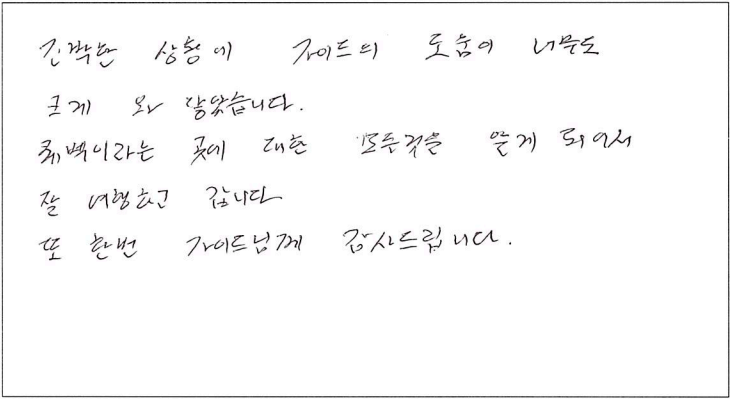 긴박한 상황에 가이드의 도움이 너무도
크게 와 닿았습니다.
퀘백이라는 곳에 대한 모든것을 알게 되어서
잘 여행하고 갑니다
또 한번 가이드님께 감사드립니다.